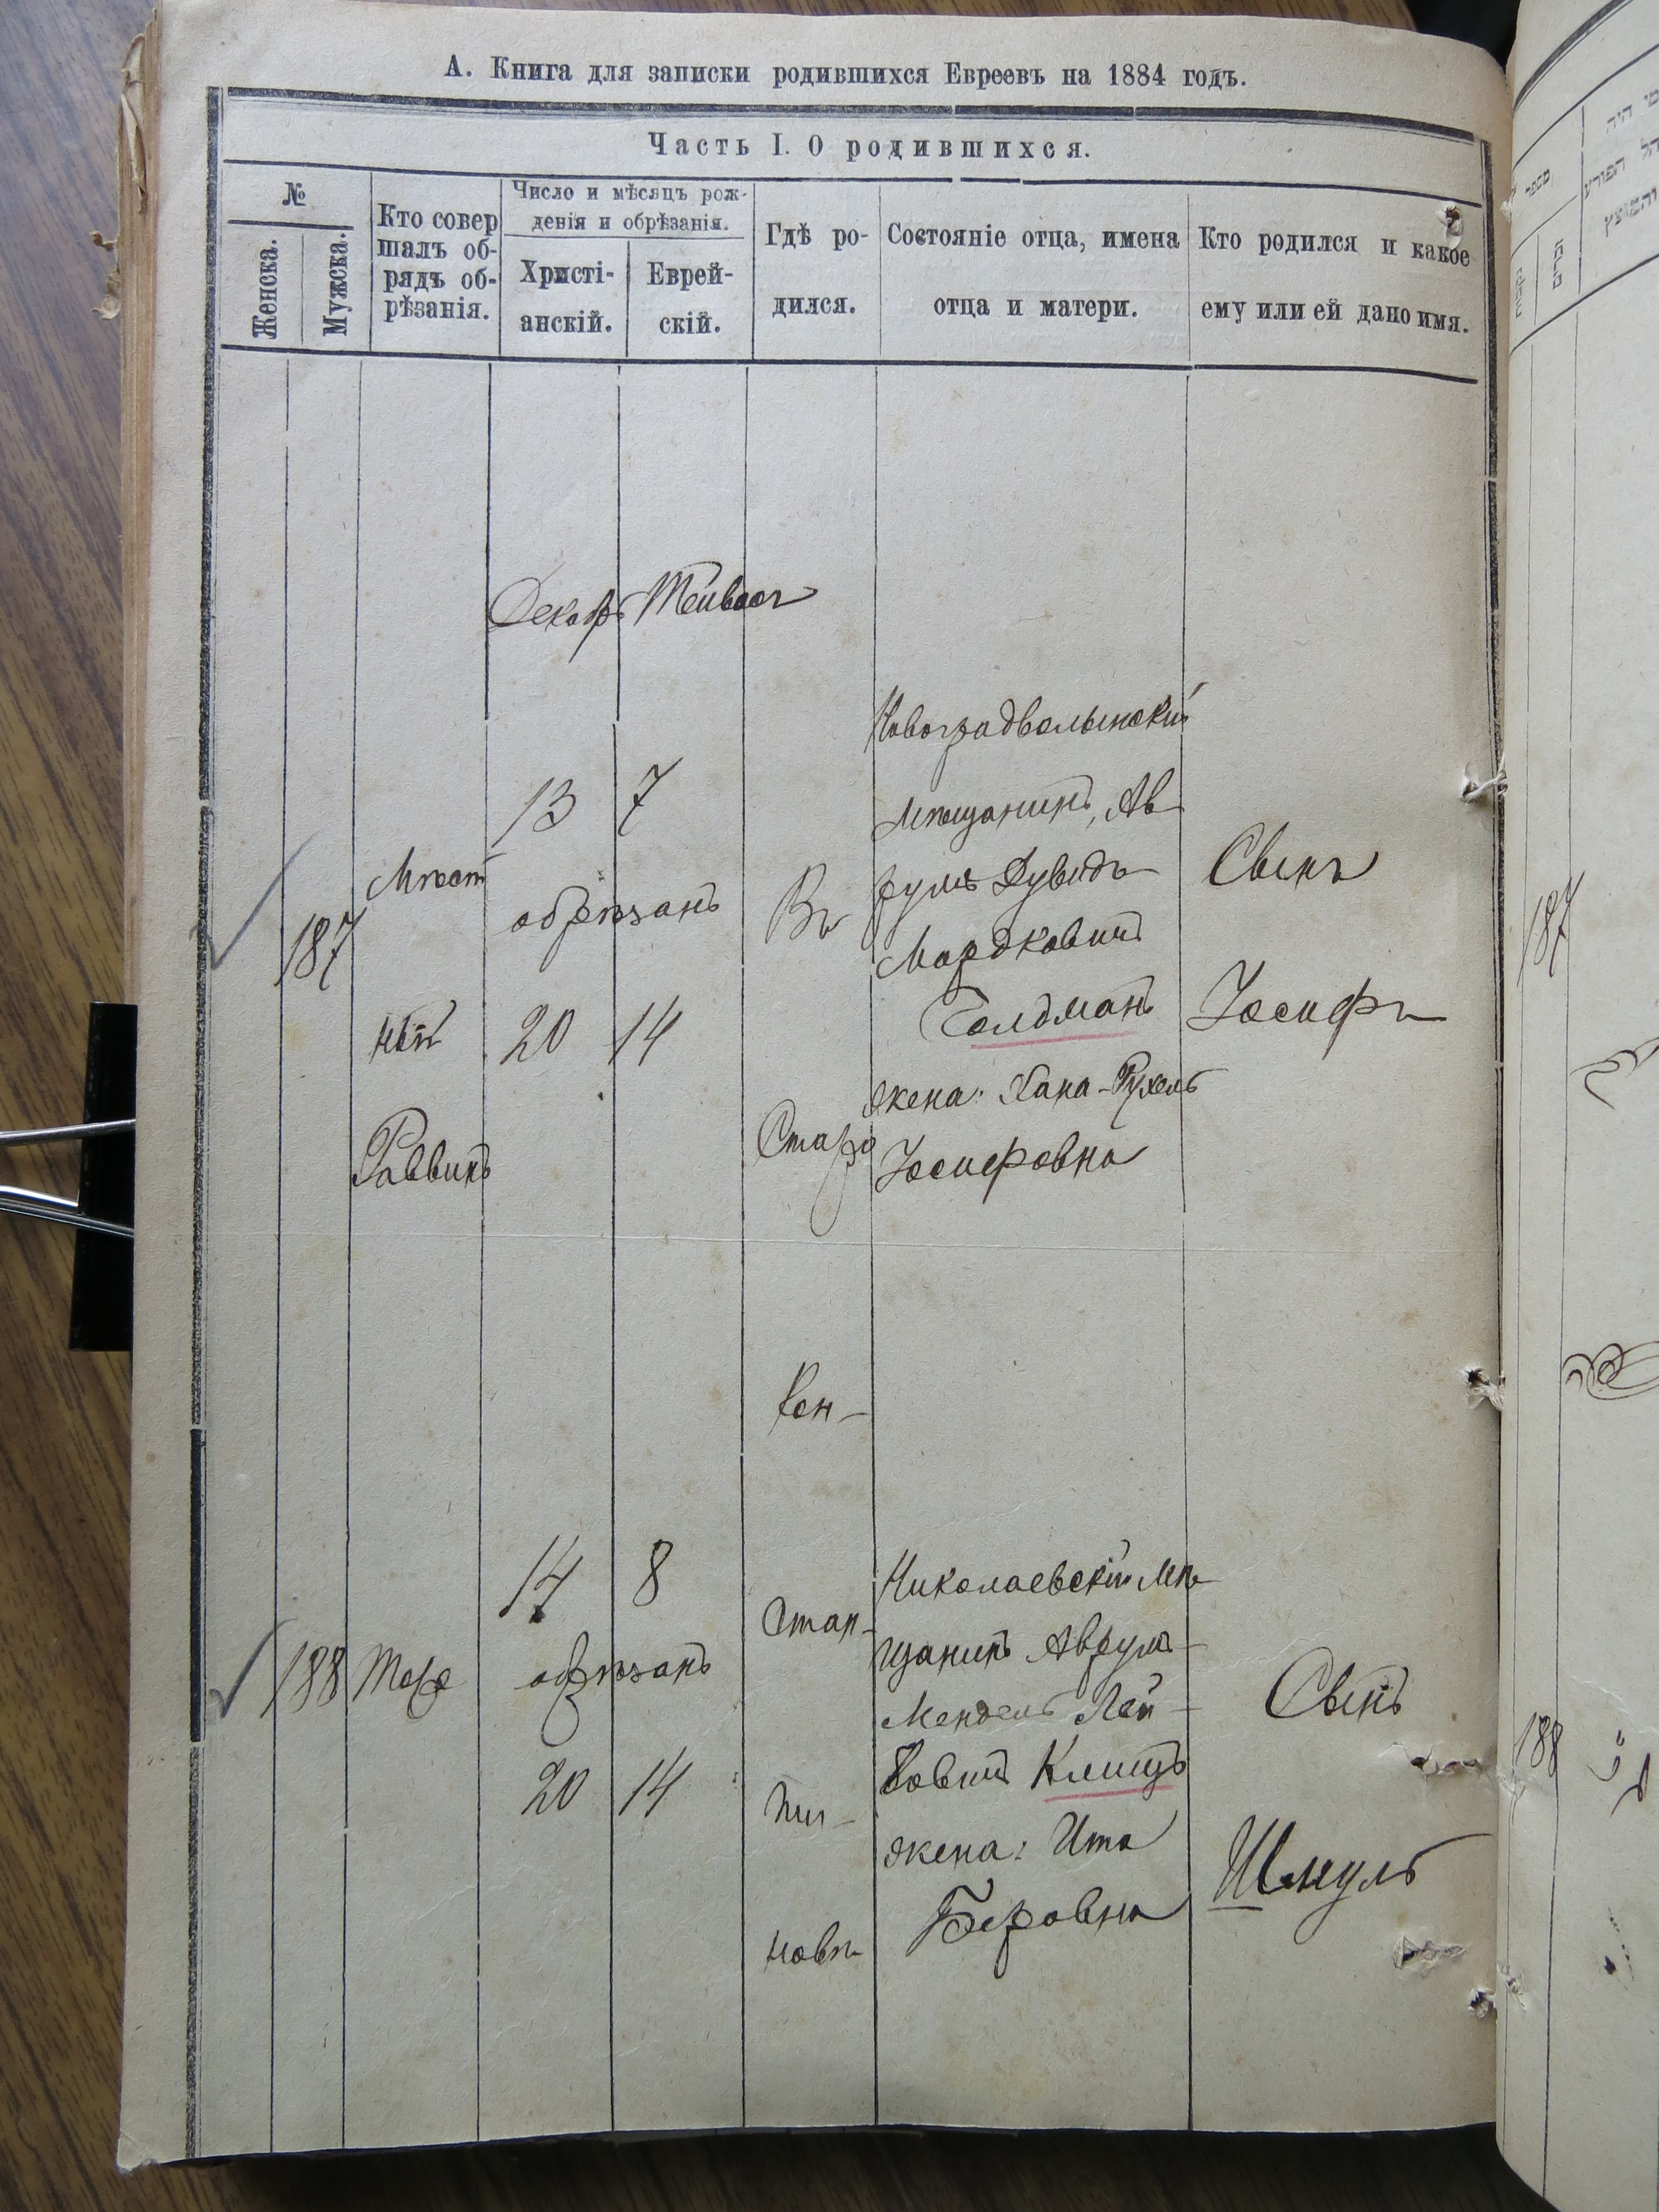 А. Книга для записки родившихся Евреевъ на 1884 годъ.
Часть I. О родившихся.
№
Женска.
Мужска.
Кто совер
шалъ об-
рядъ об-
рѣзанія.
Число и мѣсяцъ рож-
денія и обрѣзанія.
Христі-
анскій.
Еврей-
скій.
Гдѣ ро-
дился.
Состояніе отца, имена
отца и матери.
Кто родился и какое
ему или ей дано имя.
Декабр Тейвосъ
187
Мѣст
ный
Раввинъ
13 7
обрѣзанъ
20 14
Въ
Старо
Кон-
стан-
тин-
новѣ
Новоградволынскій
Мѣщанинъ, Ав-
румъ Дувидъ
Мордковичъ
Голдманъ
жена: Хана-Рухель
Іосифовна
Сынъ
Іосифъ
188
Тоже
14 8
обрѣзанъ
20 14
Николаевскій Мѣ-
щанинъ Аврумъ-
Мендель Лей-
бовичъ
жена: Ита
Беровна
Сынъ
Шмуль
187
188